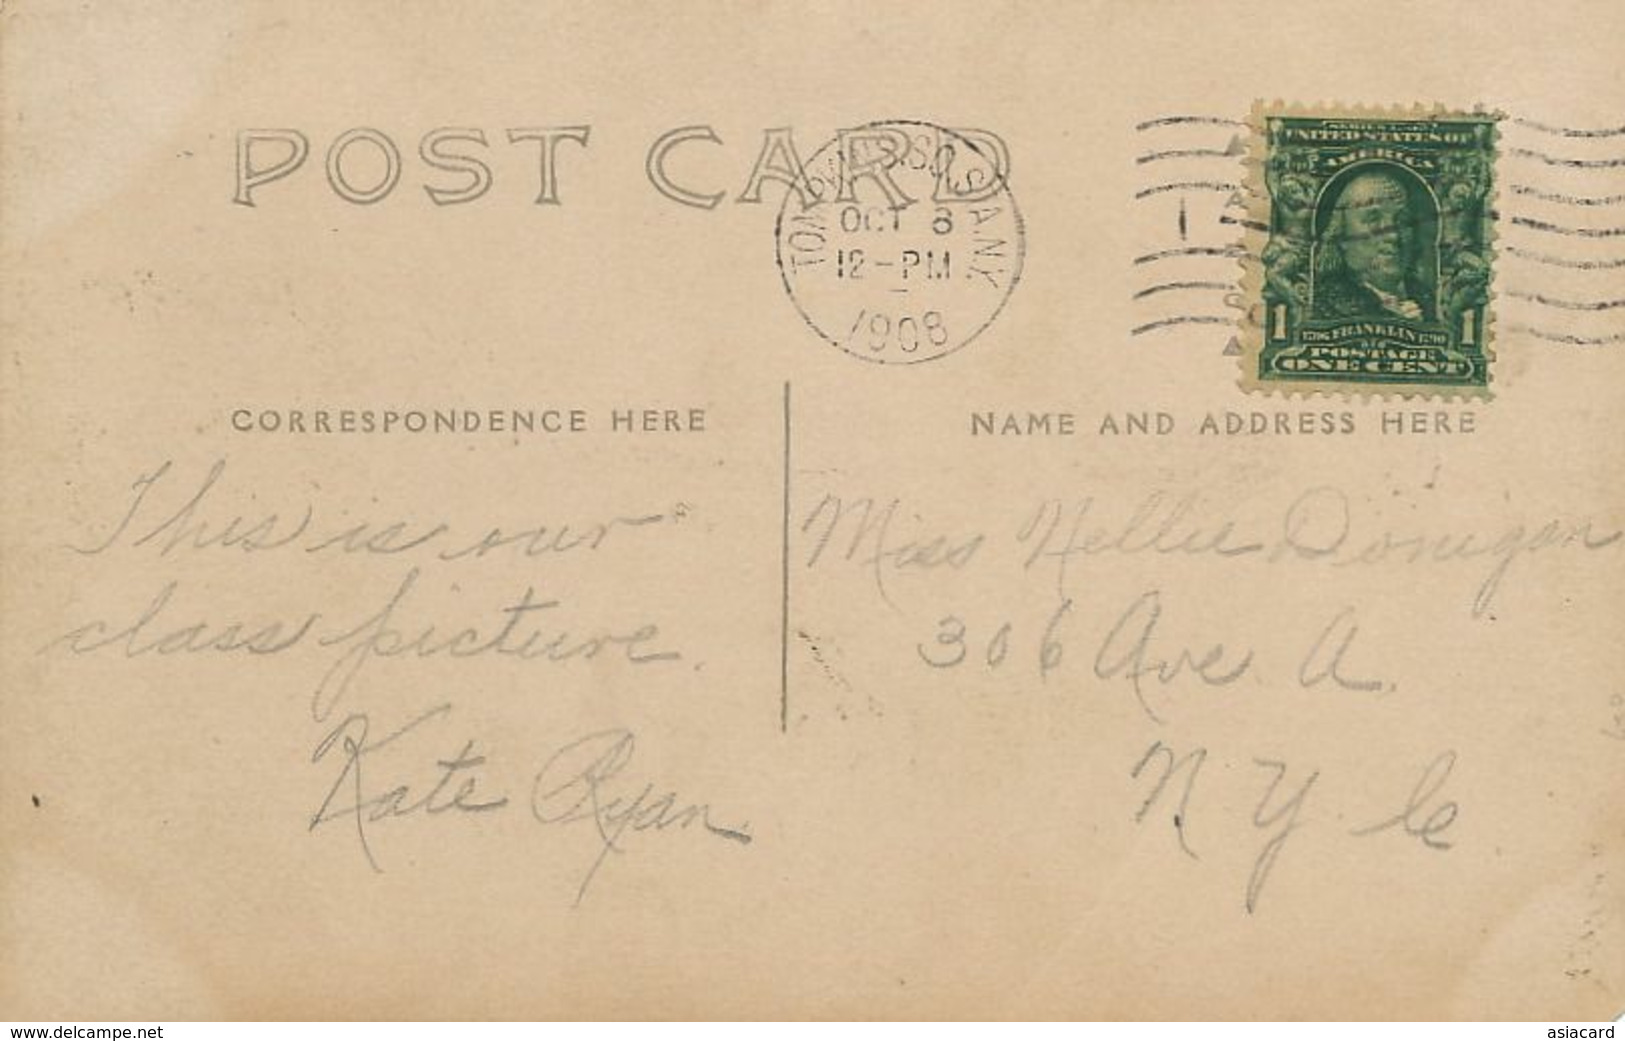 POST CARD
TOMPKINS SQ. STA. N.Y.
OCT 8
12-PM
1908
1
SERIES 1902
UNITED STATES OF
AMERICA
1 1706 FRANKLIN 1790 1
POSTAGE
ONE CENT
CORRESPONDENCE HERE
NAME AND ADDRESS HERE
This is our
class picture.
Kate Ryan
Miss Nellie Donigan
306 Ave. A.
N. Y. C
www.delcampe.net
asiacard